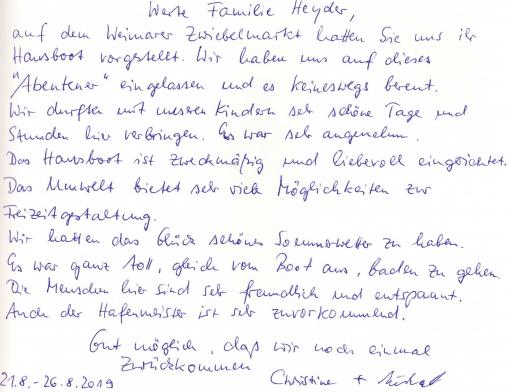 Werte Familie Heyder,
auf dem Weimarer Zwiebelmarkt hatten Sie uns ihr
Hausboot vorgestellt. Wir haben uns auf dieses
"Abenteuer" eingelassen und es keineswegs bereut.
Wir durften mit unseren Kindern sehr schöne Tage und
Stunden hier verbringen. Es war sehr angenehm.
Das Hausboot ist zweckmäßig und liebevoll eingerichtet.
Das Umwelt bietet sehr viele Möglichkeiten zur
Freizeitgestaltung.
Wir hatten das Glück schönes Sommerwetter zu haben.
Es war ganz toll, gleich vom Boot aus, baden zu gehen.
Die Menschen hier sind sehr freundlich und entspannt.
Auch der Hafenmeister ist sehr zuvorkommend.
Gut möglich, daß wir noch einmal
Zurückkommen
21.8. - 26.8.2019 Christine +